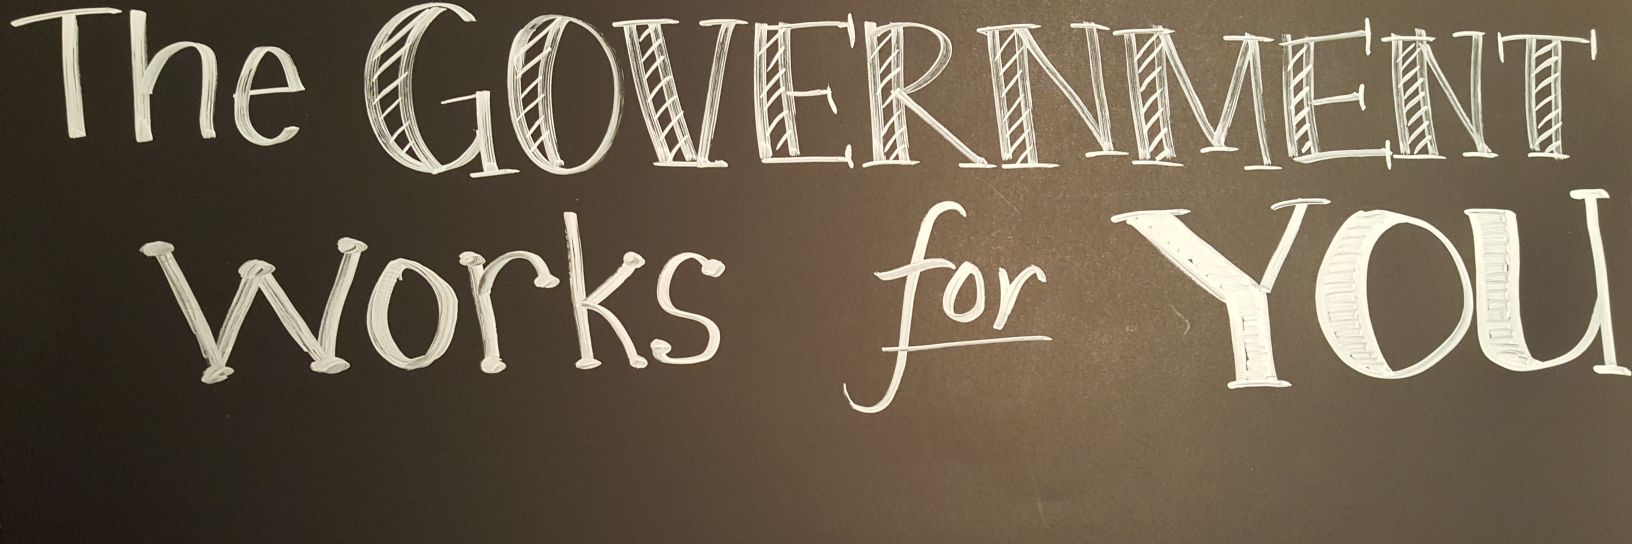 The GOVERNMENT
works for YOU